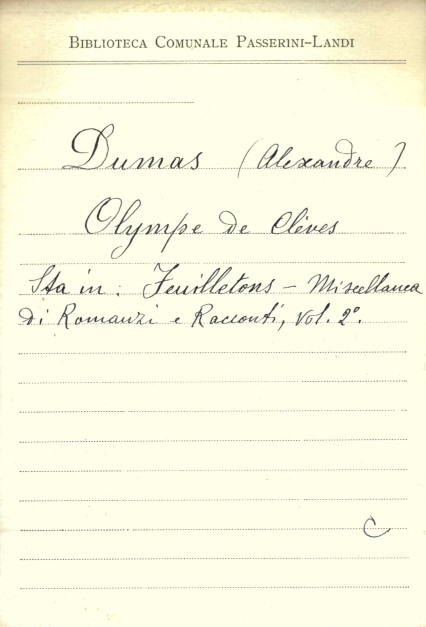 BIBLIOTECA COMUNALE PASSERINI-LANDI
Dumas (Alexandre)
Olympe de Clèves
Sta in: Feuilletons - Miscellanea
di Romanzi e Racconti, vol. 2º.
C